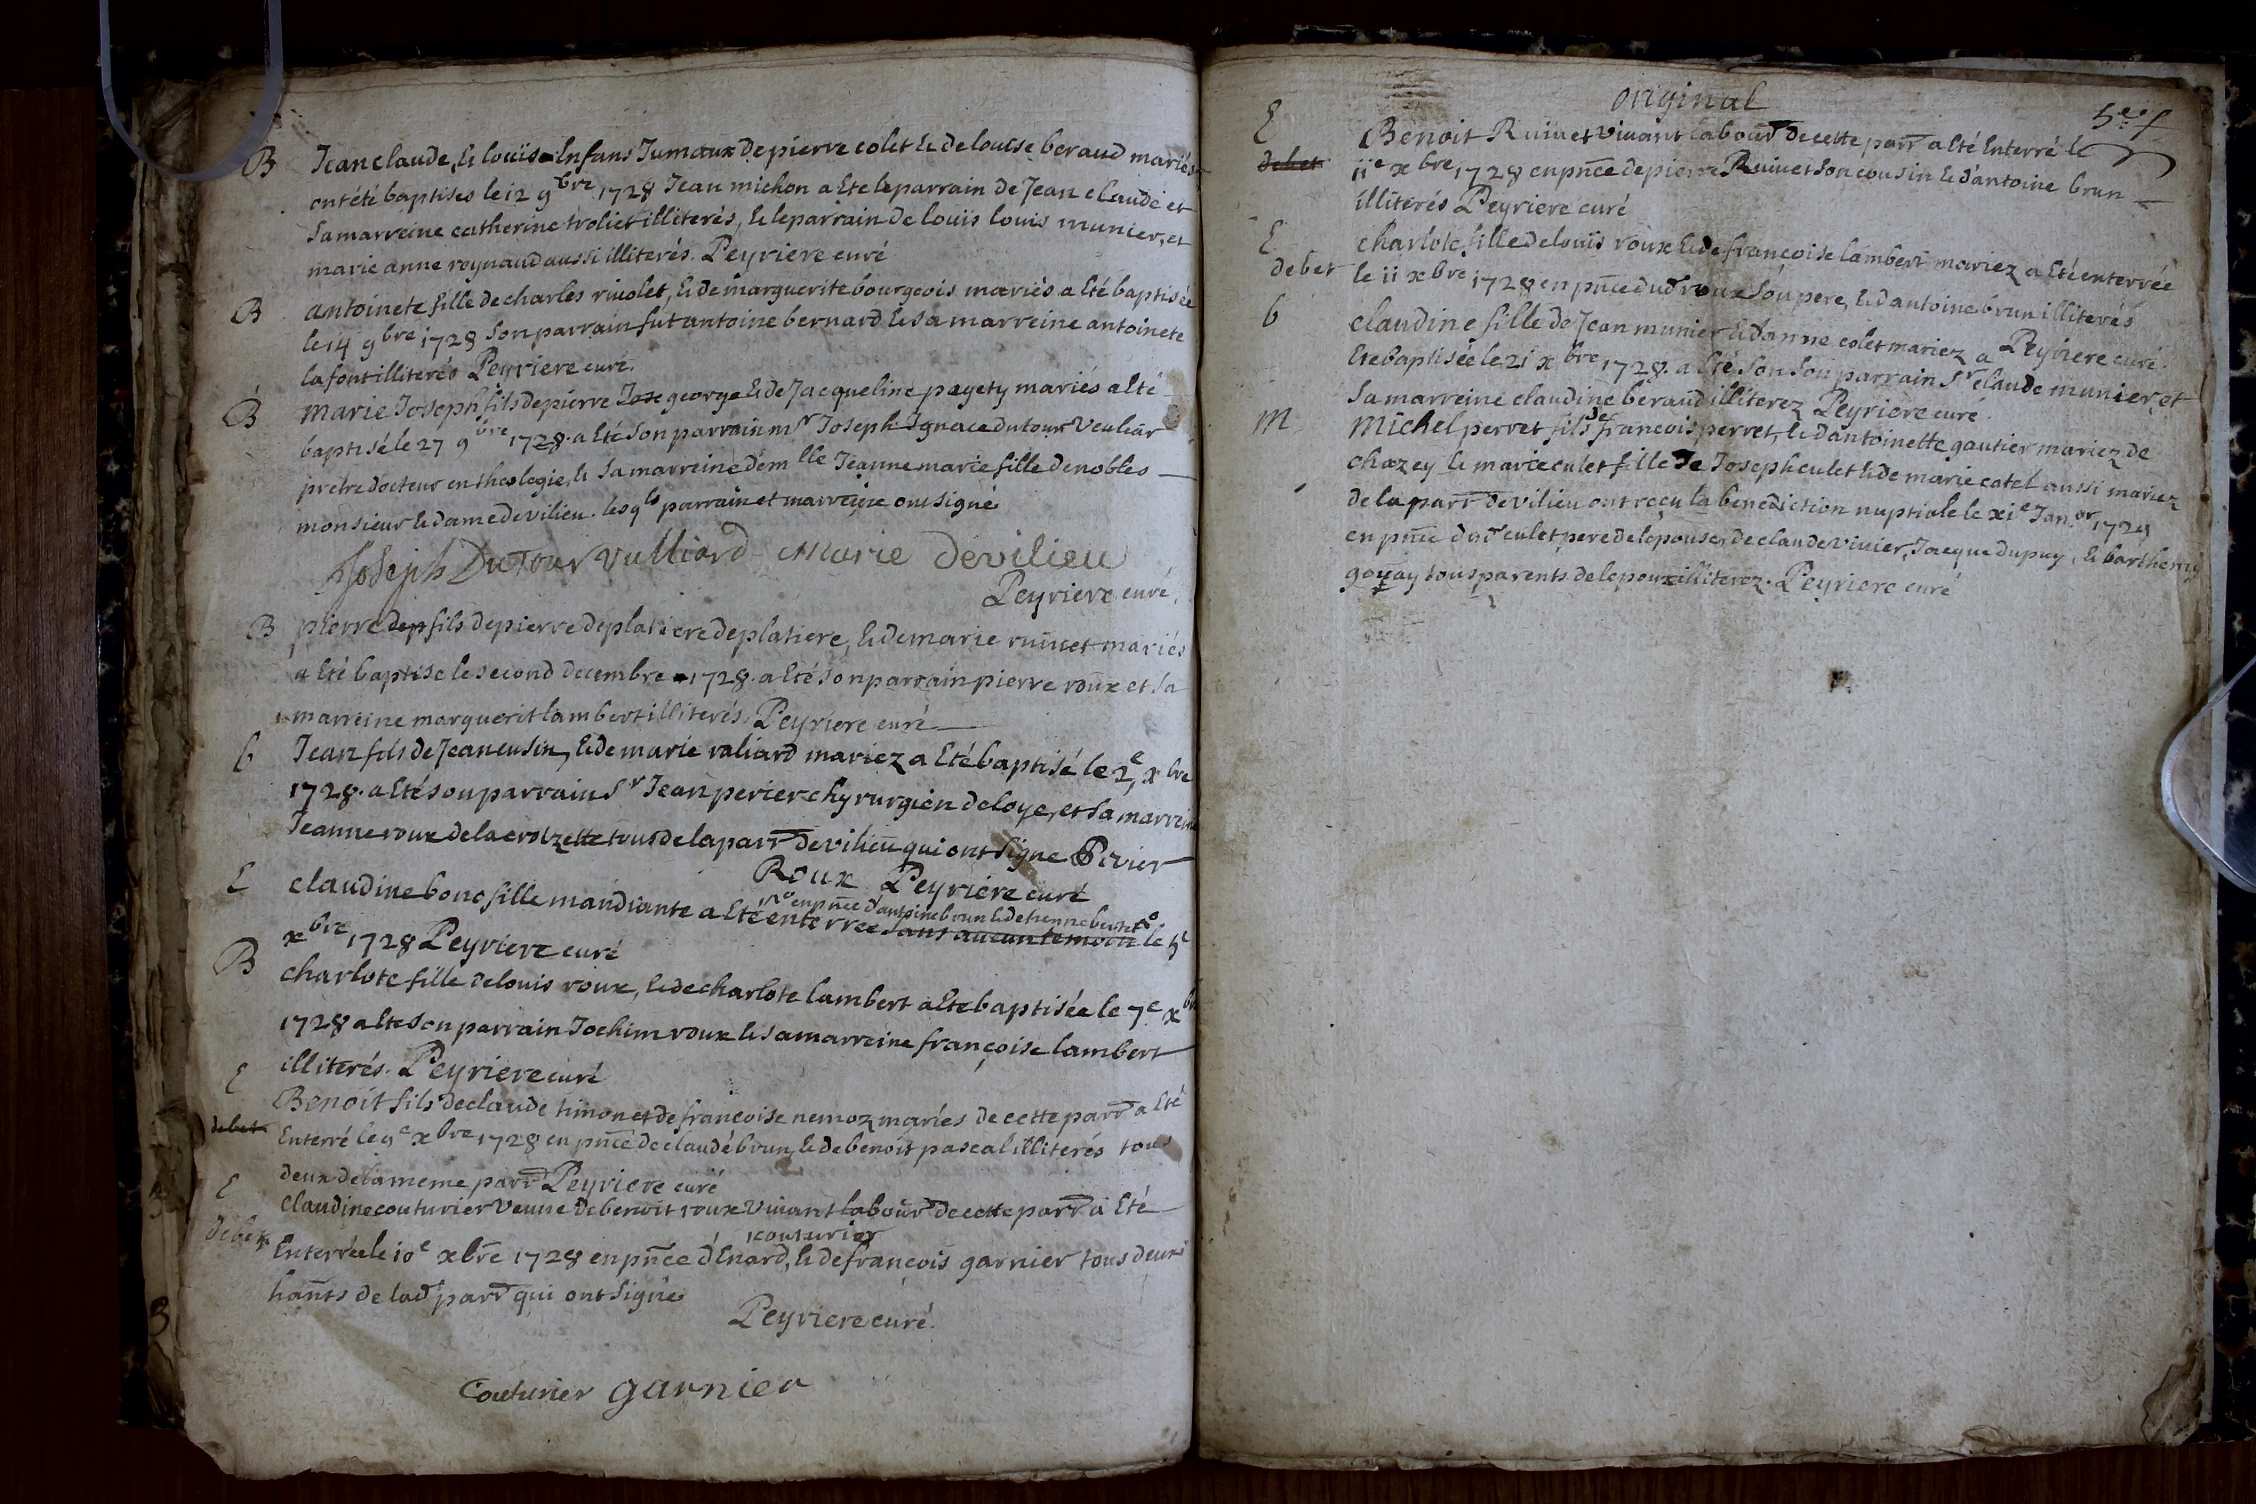 B Jean claude, & louise Enfans Jumaux de pierre colet & de louise beraud mariés
ont été baptises le 12 9bre 1728 Jean michon a Ete le parrain de Jean claude et
sa marreine catherine troliet illiterés, & le parrain de louis louis munier, et
marie anne reynaud aussi illiterés. Peyriere curé
B antoinete fille de charles riuolet, & de marguerite bourgeois mariés a Eté baptisée
le 14 9bre 1728 son parrain fut antoine bernard & sa marreine antoinete
lafont illiterés Peyriere curé
B marie Joseph fils de pierre george & de Jacqueline pagety mariés a Eté
baptisé le 27 9bre 1728. a Eté son parrain mr Joseph Ignace dutour Veuliar
prêtre docteur en theologie, & sa marreine demlle Jeanne marie fille de nobles
monsieur & dame de vilieu. lesqls parrain et marreine ont signé
Joseph DuTour Vulliard Marie Devilieu
Peyriere curé
B pierre dep fils de pierre deplatiere deplatiere, & de marie ruiuet mariés
a Eté baptise le second decembre 1728. a Eté son parrain pierre roux et sa
marreine marguerit lambert illiterés. Peyriere curé
b Jean fils de Jean cusin, & de marie valiard mariez a Eté baptisé le 2e, xbre
1728. a Eté son parrain Sr Jean perier chyrurgien de loye, et sa marreine
Jeanne roux de la croizette tous de la parr de vilieu qui ont signe Pivier
Roux Peyriere curé
en pnce d'antoine brun & detienne
E claudine bono fille mandiante a Eté enterrée sans aucun temoin le 5e
xbre 1728 Peyriere curé
B charlote fille de louis roux, & de charlote lambert a Ete baptisée le 7e xbre
1728 a Ete son parrain Jochim roux & sa marreine françoise lambert
illiterés. Peyriere curé
E Benoit fils de claude timon et de francoise nemoz mariés de cette parr a Eté
debet Enterré le 9e xbre 1728 en pnce de claude brun, & de benoit pascal illiterés tous
deux de la meme parr Peyriere curé
E claudine couturier veuue de benoit roux viuant labour de cette parr a Eté
couturier
debet Enterrée le 10e xbre 1728 en pnce d'Enard, & de francois garnier tous deux
hants de lad parr qui ont signé
Peyriere curé.
Couturier garnier
original
5e f
E Benoit Ruiuet viuant labour de cette parr a Eté Enterré le
debet iie xbre 1728 en pnce de pierre Ruiuet son cousin & d'antoine brun
illiterés Peyriere curé
E charlote fille de louis roux & de francoise lambert mariez a Eté enterrée
debet le ii xbre 1728 en pnce dud roux son pere, & d'antoine brun illiterés
Peyriere curé
b claudine fille de Jean munier & d'anne colet mariez a
Ete baptisée le 21 xbre 1728. a Eté son son parrain Sr claude munier, et
sa marreine claudine beraud illiterez Peyriere curé.
M michel perret fils de francois perret, & d'antoinette gautier mariez de
chazey & marie culet fille de Joseph culet & de marie catel aussi mariez
de la parr de vilieu ont reçu la benediction nuptiale le xie Janer 1729
en pnce dud culet pere de lepouse, de claude viuier, Jacque dupuy, & barthemy
goyay tous parents de lepoux illiterez. Peyriere curé